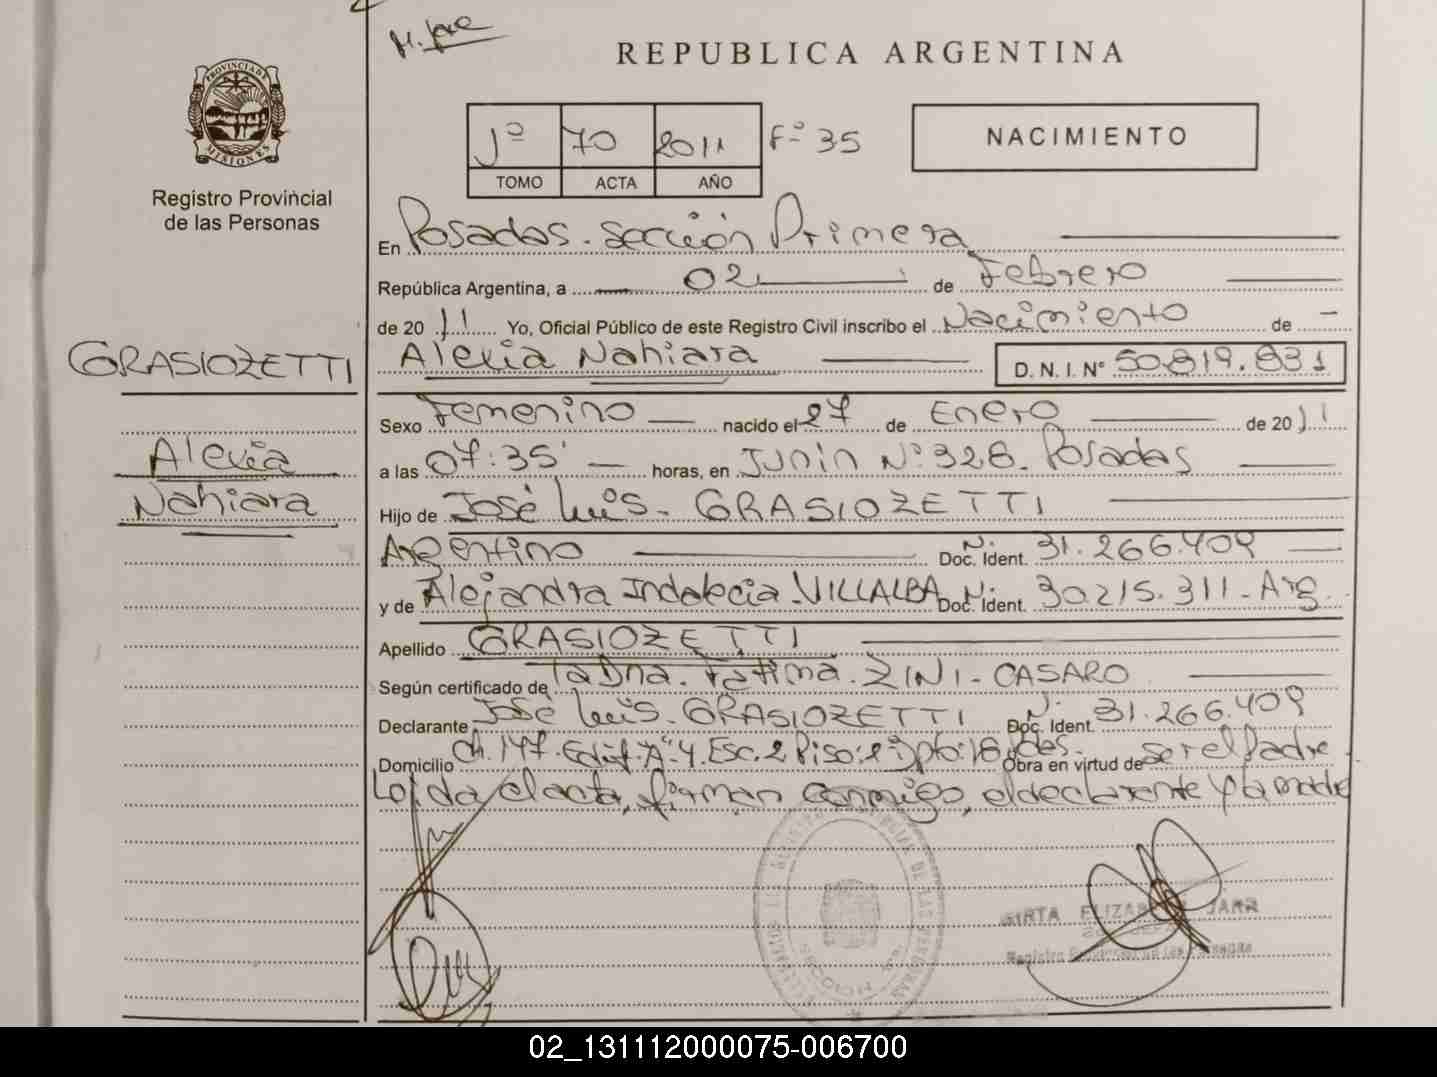 REPUBLICA ARGENTINA
PROVINCIA DE
MISIONES
Registro Provincial
de las Personas
Jº 70 2011 Fº 35
TOMO ACTA AÑO
NACIMIENTO
En Posadas - Sección Primera
República Argentina, a 02 de Febrero
de 2011 Yo, Oficial Público de este Registro Civil inscribo el Nacimiento de -
GRASIOZETTI
Alexia Nahiara D. N. I. Nº 50.819.831
Sexo Femenino nacido el 27 de Enero de 2011
Alexia
a las 07:35 horas, en Junín Nº 326. Posadas
Nahiara
Hijo de José Luis - GRASIOZETTI
Argentino Doc. Ident. Nº 31.266.409
y de Alejandra Indalecia VILLALBA Doc. Ident. Nº 30.215.311 - Arg.
Apellido GRASIOZETTI
Según certificado de la Dna. Fátima. ZINI - CASARO
Declarante José Luis - GRASIOZETTI Doc. Ident. Nº 31.266.409
Domicilio Ch. 147. Edif. "A" 4. Esc. 2 Piso: 2 Dpto: 18 Pdas. Obra en virtud de ser el Padre.
Leída el acta, firman conmigo, el declarante y la madre
02_131112000075-006700